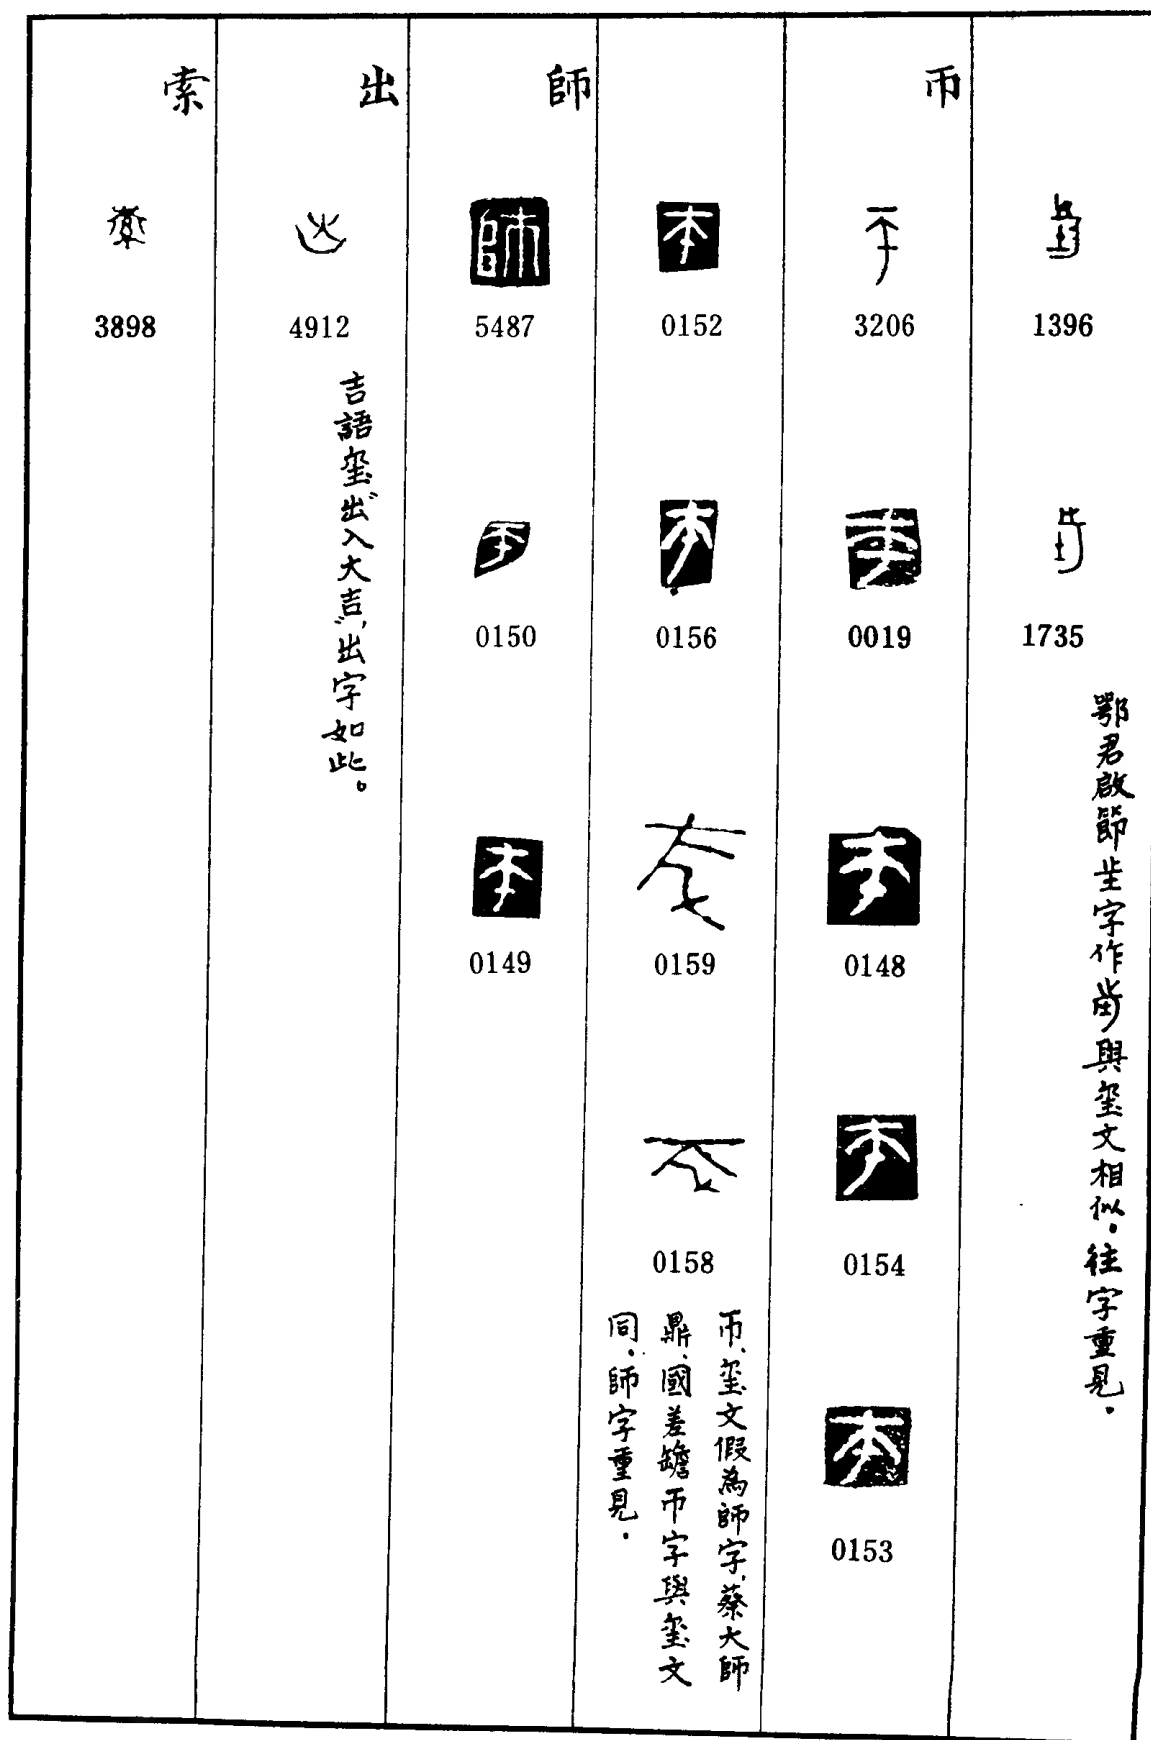 1396
1735
鄂君啟節㞷字作
與璽文相似。往字重見。
帀
3206
0019
0148
0154
0153
0152
0156
0159
0158
帀、璽文假為師字、蔡大師
鼎、國差𦉜帀字與璽文
同。師字重見。
師
5487
0150
0149
出
4912
吉語璽“出入大吉”，出字如此。
索
3898